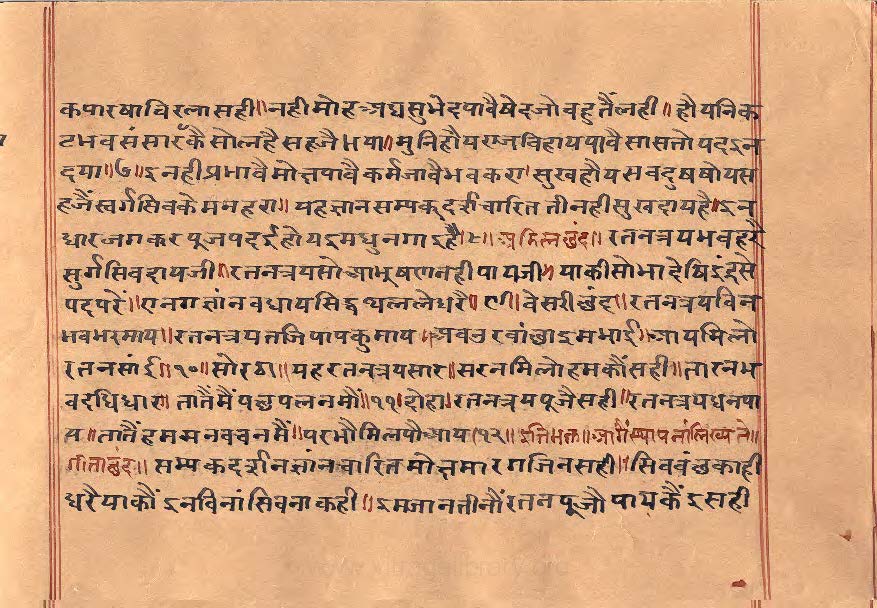 कपारषाविरलासही॥नहीमोहअघसुभेदपावैषेदजोवहुतैंलही॥हौयनिक
टभवसंसारकैसोलहैसहजैभया॥मुनिहौयराजविहायपावैसासतोपदऽन
दया॥७॥ऽनहीप्रभावैमोक्षपावैकर्मजावैभवकरा॥सुखहौयसवदुषषोयस
हजैंस्वर्गसिवकेमनहरा॥यहज्ञानसम्पकदर्शचारिततीनहीसुखदायहै॥ऽन
धारजगकरपूजपदईहोयऽमधुनगाऽहै॥८॥अडिल्लछंद॥रतनत्रयभवहरै
सुर्गसिवदायजी॥रतनत्रयसोआभूषणनहीपायजी॥याकीसोभादेषिऽंद्रसे
पदपरें॥एनगज्ञांनवधायसिद्धथललेधरै॥९॥वेसरीछंद॥रतनत्रयविन
भवभरमाय॥रतनत्रयतजिपापकुमाय॥अवतुरवांछाऽमभाई॥आयमिलो
रतनसांई॥१०॥सोरठा॥यहरतनत्रयसार॥सरनमिलोहमकौंसही॥तारनभ
वदधिधार॥तातैंमैंपछपलनमौं॥११॥दोहा॥रतनत्रयपूजैसही॥रतनत्रयधनपा
य॥तातैंहममनवचनमैं॥परभौमिलपौआय॥१२॥इतिभक्त॥आगैंस्थापनांलिख्यते॥
गीताछंद॥सम्पकदर्शनज्ञांनचारितमोक्षमारगजिनसही॥सिववंछकाही
धरैयाकौंऽनविनांसिवनाकही॥ऽमजानतीनौंरतनपूजौपायकैंऽसही